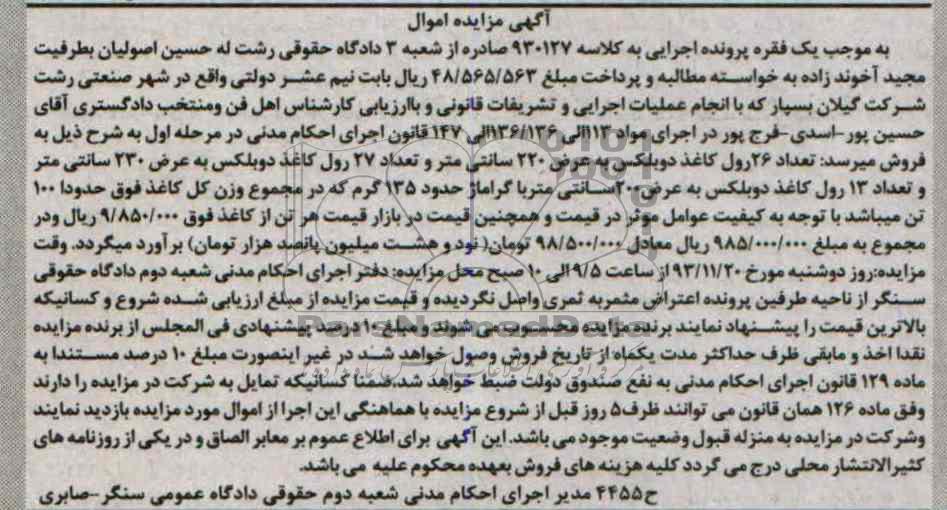 آگهی مزایده اموال
به موجب یک فقره پرونده اجرایی به کلاسه ۹۳۰۱۲۷ صادره از شعبه ۳ دادگاه حقوقی رشت له حسین اصولیان بطرفیت
مجید آخوند زاده به خواسته مطالبه و پرداخت مبلغ ۴۸/۵۶۵/۵۶۳ ریال بابت نیم عشر دولتی واقع در شهر صنعتی رشت
شرکت گیلان بسپار که با انجام عملیات اجرایی و تشریفات قانونی و باارزیابی کارشناس اهل فن ومنتخب دادگستری آقای
حسین پور-اسدی-فرج پور در اجرای مواد ۱۱۳الی ۱۳۶/۱۳۶الی ۱۴۷ قانون اجرای احکام مدنی در مرحله اول به شرح ذیل به
فروش میرسد: تعداد ۲۶رول کاغذ دوبلکس به عرض ۲۲۰ سانتی متر و تعداد ۲۷ رول کاغذ دوبلکس به عرض ۲۳۰ سانتی متر
و تعداد ۱۳ رول کاغذ دوبلکس به عرض۲۰۰سانتی متربا گراماژ حدود ۱۳۵ گرم که در مجموع وزن کل کاغذ فوق حدودا ۱۰۰
تن میباشد با توجه به کیفیت عوامل موثر در قیمت و همچنین قیمت در بازار قیمت هر تن از کاغذ فوق ۹/۸۵۰/۰۰۰ ریال ودر
مجموع به مبلغ ۹۸۵/۰۰۰/۰۰۰ ریال معادل ۹۸/۵۰۰/۰۰۰ تومان( نود و هشت میلیون پانصد هزار تومان) برآورد میگردد. وقت
مزایده:روز دوشنبه مورخ ۹۳/۱۱/۲۰ از ساعت ۹/۵الی ۱۰ صبح محل مزایده: دفتر اجرای احکام مدنی شعبه دوم دادگاه حقوقی
سنگر از ناحیه طرفین پرونده اعتراض مثمربه ثمری واصل نگردیده و قیمت مزایده از مبلغ ارزیابی شده شروع و کسانیکه
بالاترین قیمت را پیشنهاد نمایند برنده مزایده محسوب می شوند و مبلغ ۱۰درصد پیشنهادی فی المجلس از برنده مزایده
نقدا اخذ و مابقی ظرف حداکثر مدت یکماه از تاریخ فروش وصول خواهد شد در غیر اینصورت مبلغ ۱۰ درصد مستندا به
ماده ۱۲۹ قانون اجرای احکام مدنی به نفع صندوق دولت ضبط خواهد شد.ضمنا کسانیکه تمایل به شرکت در مزایده را دارند
وفق ماده ۱۲۶ همان قانون می توانند ظرف۵ روز قبل از شروع مزایده با هماهنگی این اجرا از اموال مورد مزایده بازدید نمایند
وشرکت در مزایده به منزله قبول وضعیت موجود می باشد. این آگهی برای اطلاع عموم بر معابر الصاق و در یکی از روزنامه های
کثیرالانتشار محلی درج می گردد کلیه هزینه های فروش بعهده محکوم علیه می باشد.
ح۴۴۵۵ مدیر اجرای احکام مدنی شعبه دوم حقوقی دادگاه عمومی سنگر-صابری
ParsNamadData